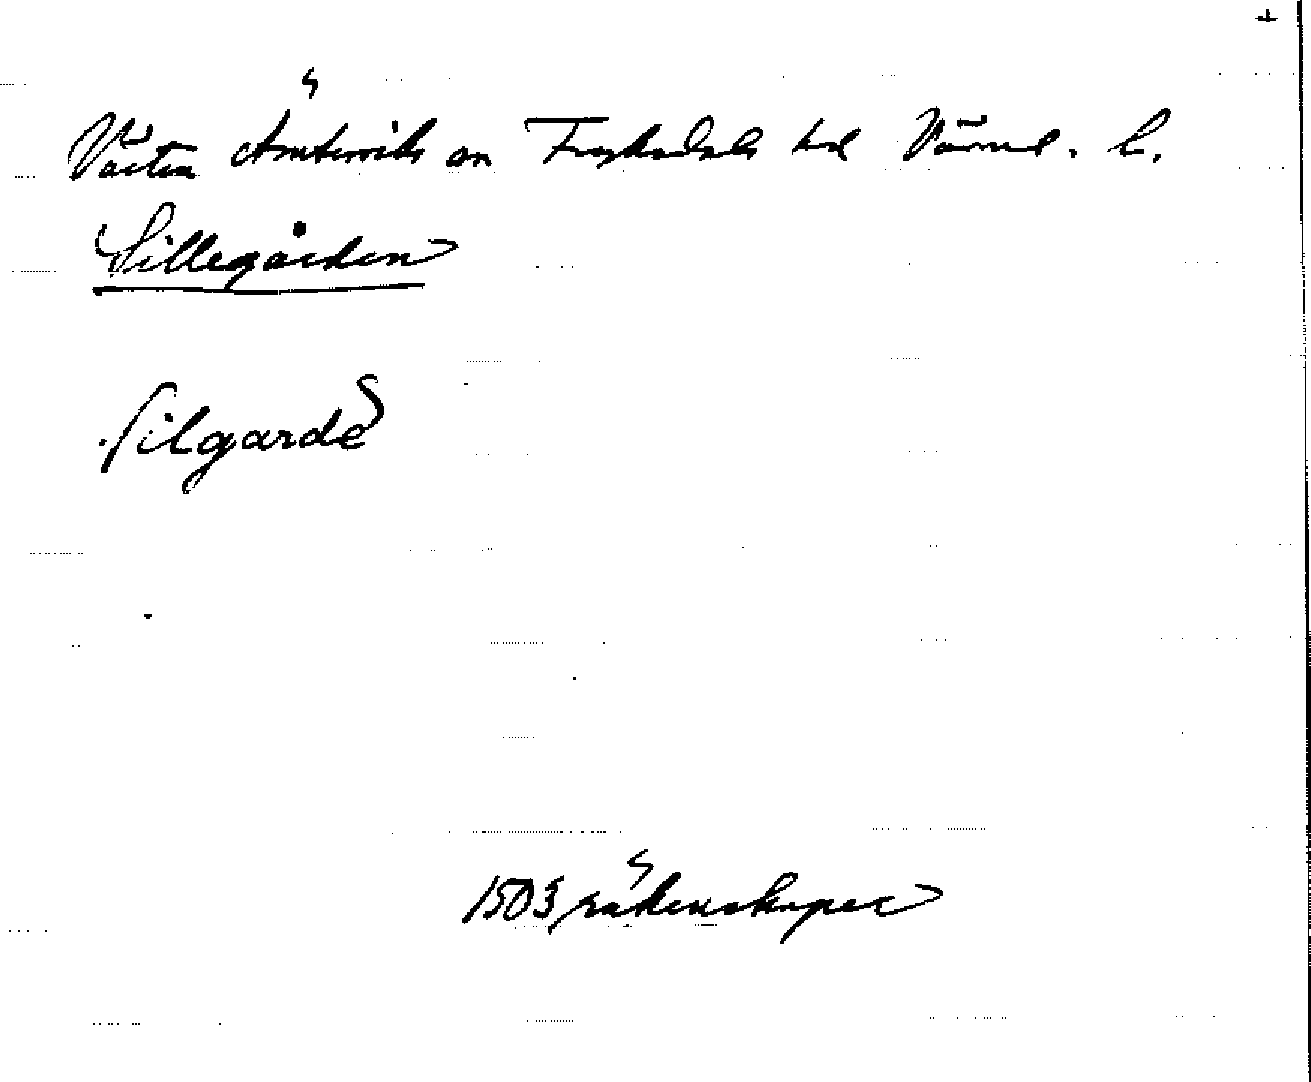 Västra Ämterviks sn Fryksdals hd Värml. l.
Sillegården
silgarde
1503 räkenskaper